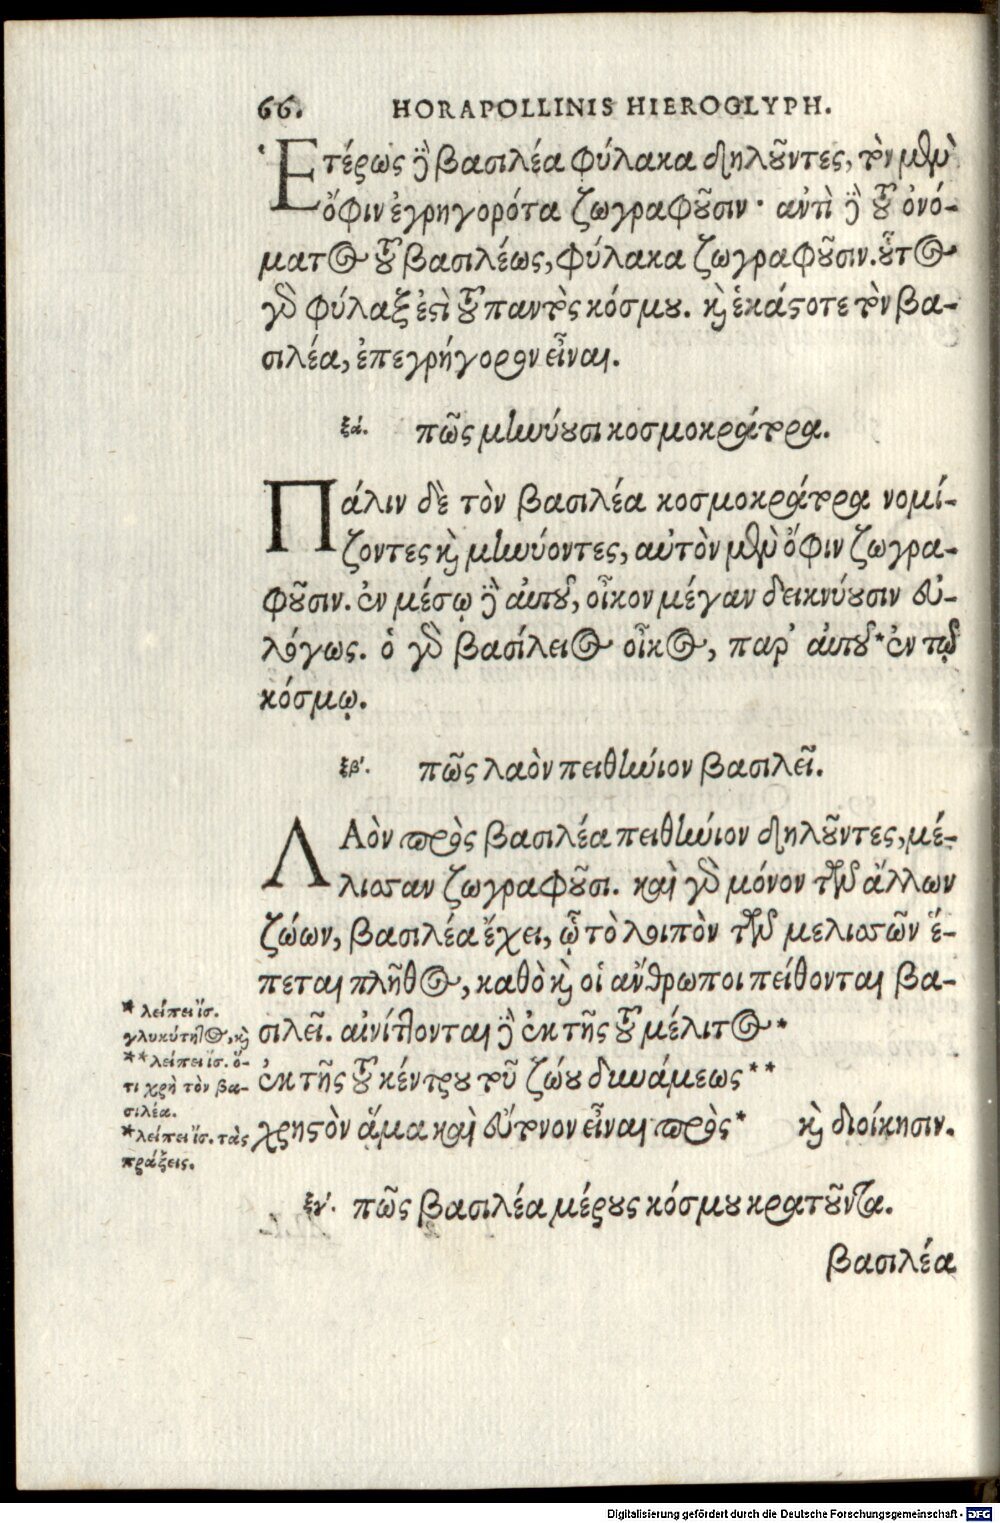 66. HORAPOLLINIS HIEROGLYPH.
Ἑτέρως δὲ βασιλέα φύλακα δηλοῦντες, τὸν μὲν
ὄφιν ἐγρηγορότα ζωγραφοῦσιν· αὐτὶ δὲ τοῦ ὀνό-
ματος τοῦ βασιλέως, φύλακα ζωγραφοῦσιν. οὗτος
γὰρ φύλαξ ἐστὶ τοῦ παντὸς κόσμου. καὶ ἑκάστοτε τὸν βα-
σιλέα, ἐπεγρήγορον εἶναι.
ξά. πῶς μηνύουσι κοσμοκράτορα.
Πάλιν δὲ τὸν βασιλέα κοσμοκράτορα νομί-
ζοντες καὶ μηνύοντες, αὐτὸν μὲν ὄφιν ζωγρα-
φοῦσιν. ἐν μέσῳ δὲ αὐτοῦ, οἶκον μέγαν δεικνύουσιν εὐ-
λόγως. ὁ γὰρ βασίλειος οἶκος, παρ' αὐτοῦ* ἐν τῷ
κόσμῳ.
ξβ'. πῶς λαὸν πειθήνιον βασιλεῖ.
ΛΑὸν πρὸς βασιλέα πειθήνιον δηλοῦντες, μέ-
λισσαν ζωγραφοῦσι. καὶ γὰρ μόνον τῶν ἄλλων
ζώων, βασιλέα ἔχει, ᾧ τὸ λοιπὸν τῶν μελισσῶν ἕ-
πεται πλῆθος, καθὸ καὶ οἱ ἄνθρωποι πείθονται βα-
σιλεῖ. αἰνίττονται δὲ ἐκ τῆς τοῦ μέλιτος*
ἐκ τῆς τοῦ κέντρου τοῦ ζώου δυνάμεως**
χρηστὸν ἅμα καὶ εὔτονον εἶναι πρὸς* καὶ διοίκησιν.
* λείπει ἴσ.
γλυκύτητος, καὶ
** λείπει ἴσ. ὅ-
τι χρὴ τὸν βα-
σιλέα.
* λείπει ἴσ. τὰς
πράξεις.
ξγ'. πῶς βασιλέα μέρους κόσμου κρατοῦντα.
βασιλέα
Digitalisierung gefördert durch die Deutsche Forschungsgemeinschaft - DFG